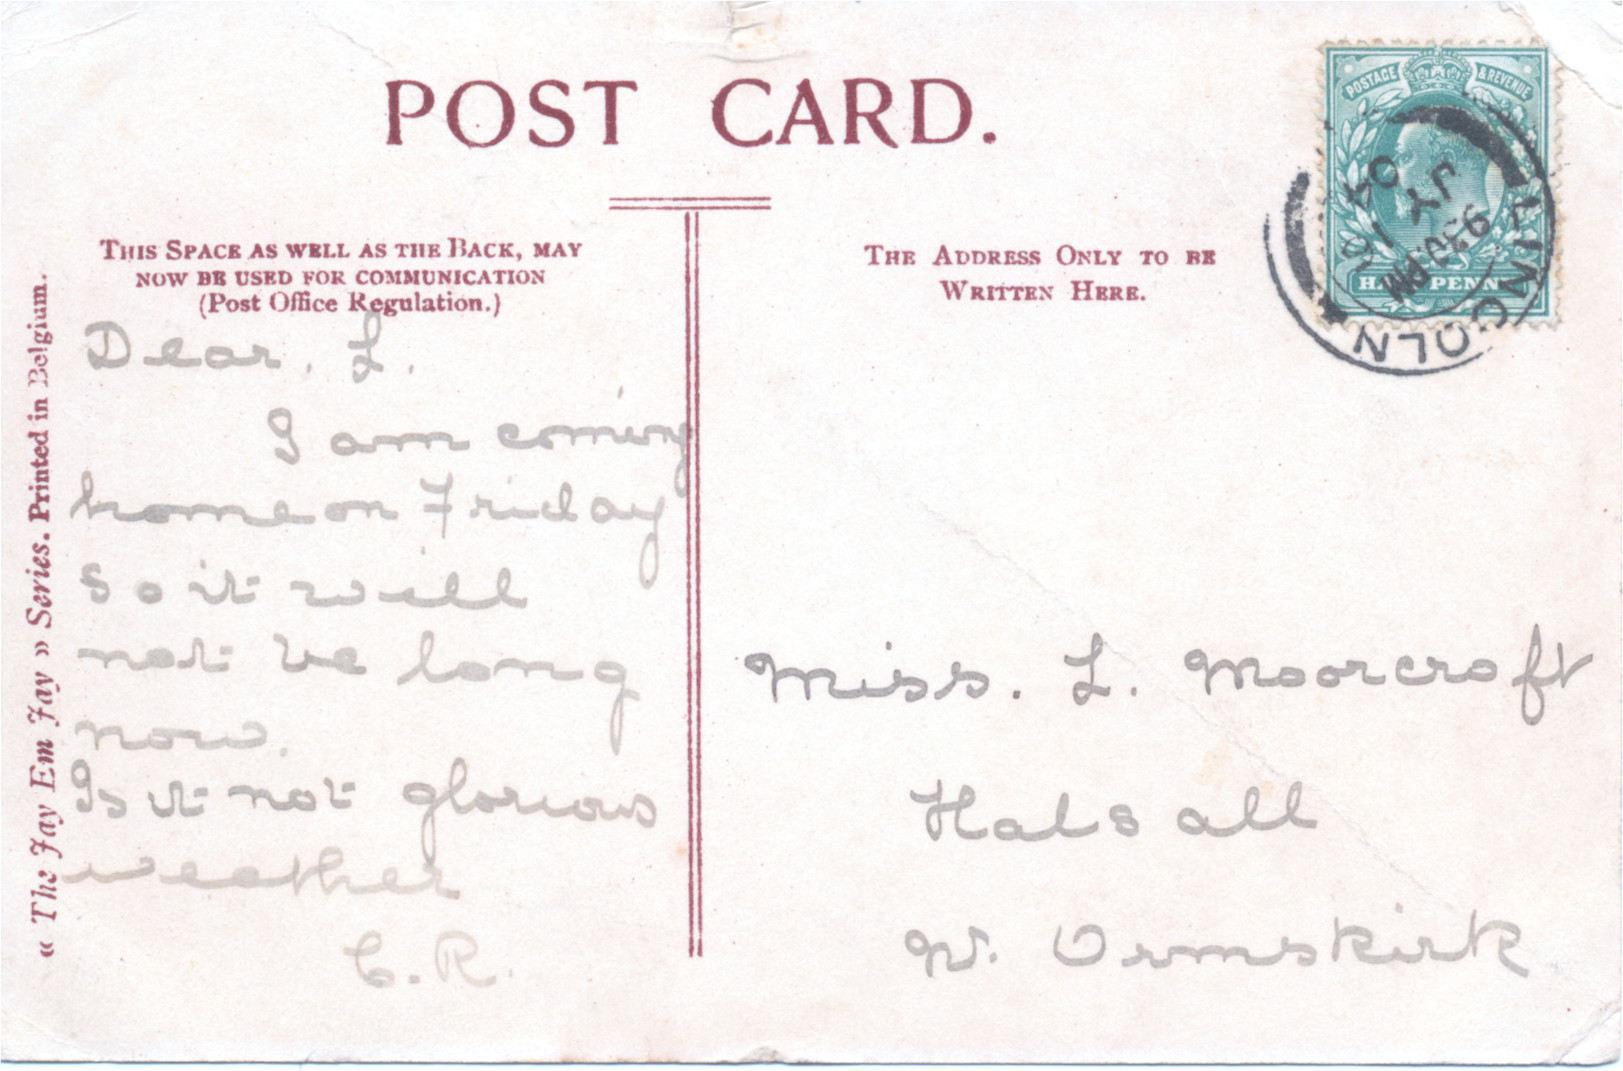 POST CARD.
THIS SPACE AS WELL AS THE BACK, MAY
NOW BE USED FOR COMMUNICATION
(Post Office Regulation.)
THE ADDRESS ONLY TO BE
WRITTEN HERE.
POSTAGE & REVENUE
HALFPENNY
LINCOLN
9 30 PM
JY 19
04
« The Jay Em Jay » Series. Printed in Belgium.
Dear. L.
I am coming
home on Friday
so it will
not be long
now.
Is it not glorious
weather
C.R.
Miss. L. Moorcroft
Halsall
Nr. Ormskirk